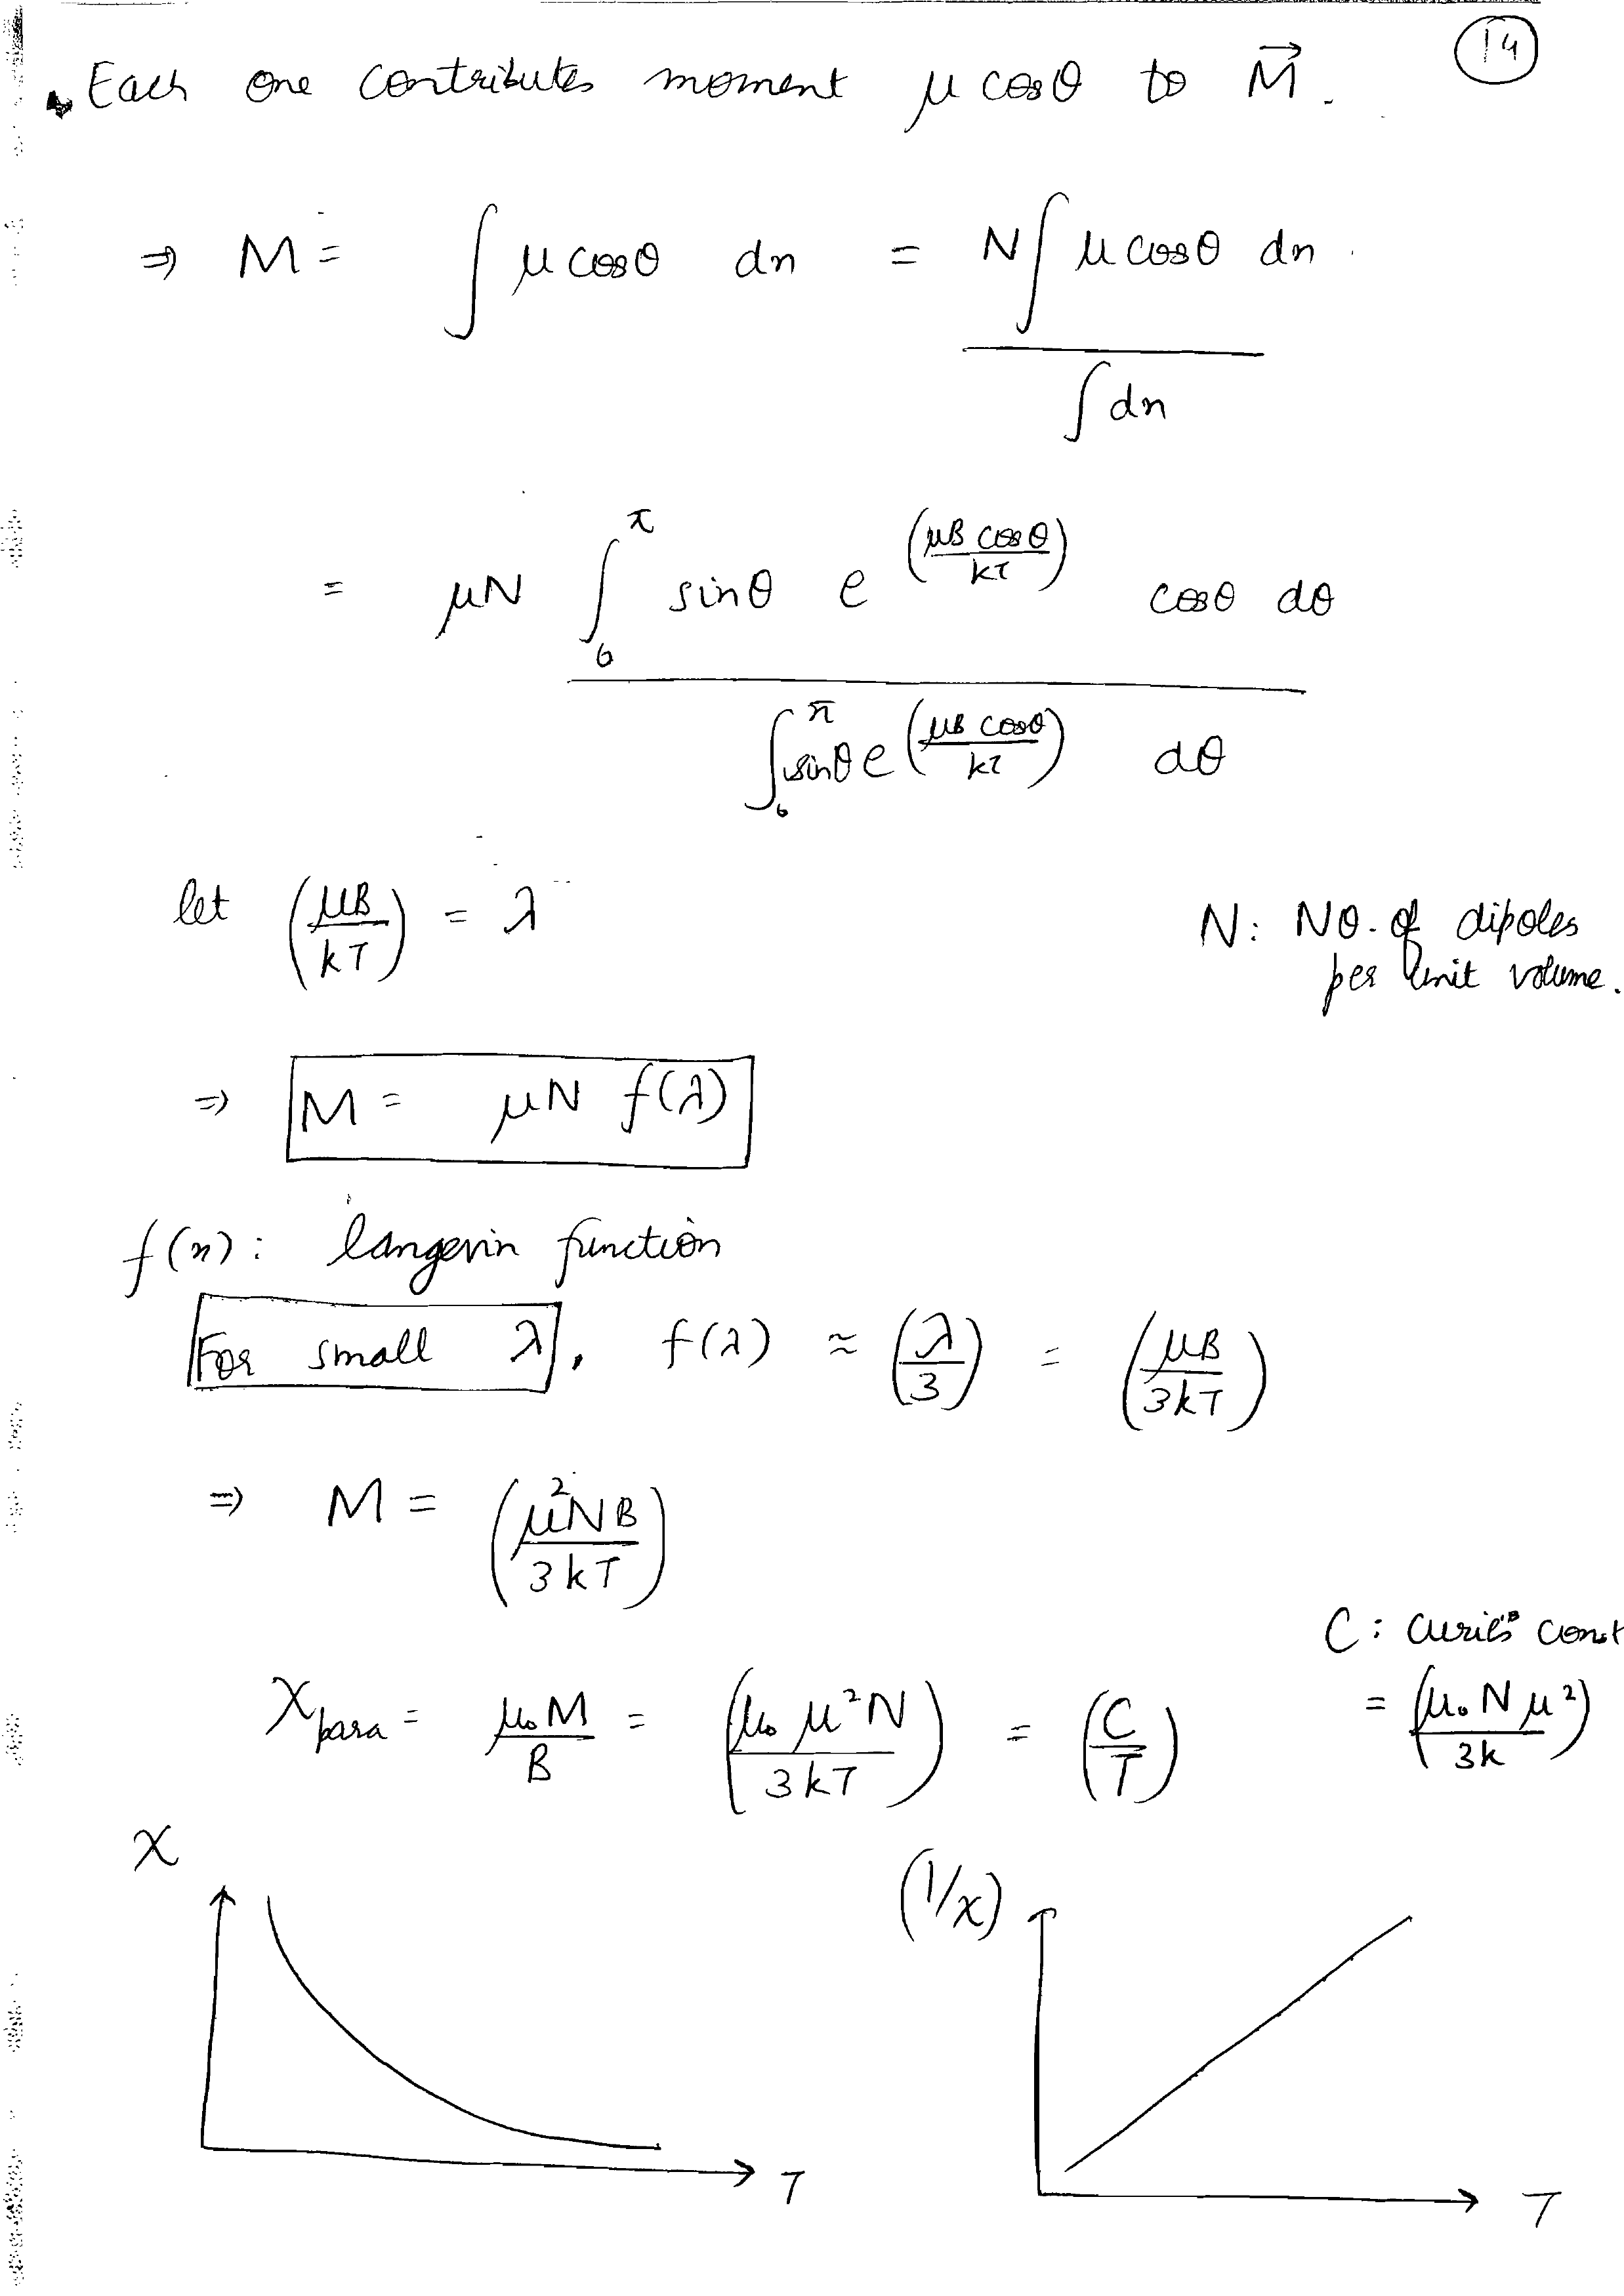 14
Each one contributes moment μ cosθ to M⃗.
⇒ M = ∫ μ cosθ dn = N ∫ μ cosθ dn / ∫ dn
= μN ∫₀^π sinθ e^(μB cosθ / kT) cosθ dθ / ∫₀^π sinθ e^(μB cosθ / kT) dθ
let (μB / kT) = λ
N: NO. of dipoles
per unit volume.
⇒ M = μN f(λ)
f(n): langevin function
For small λ, f(λ) ≈ (λ/3) = (μB / 3kT)
⇒ M = (μ²NB / 3kT)
C: Curie's const
χpara = μ₀M / B = (μ₀ μ²N / 3kT) = (C/T)
= (μ₀ N μ² / 3k)
χ
(1/χ)
T
T